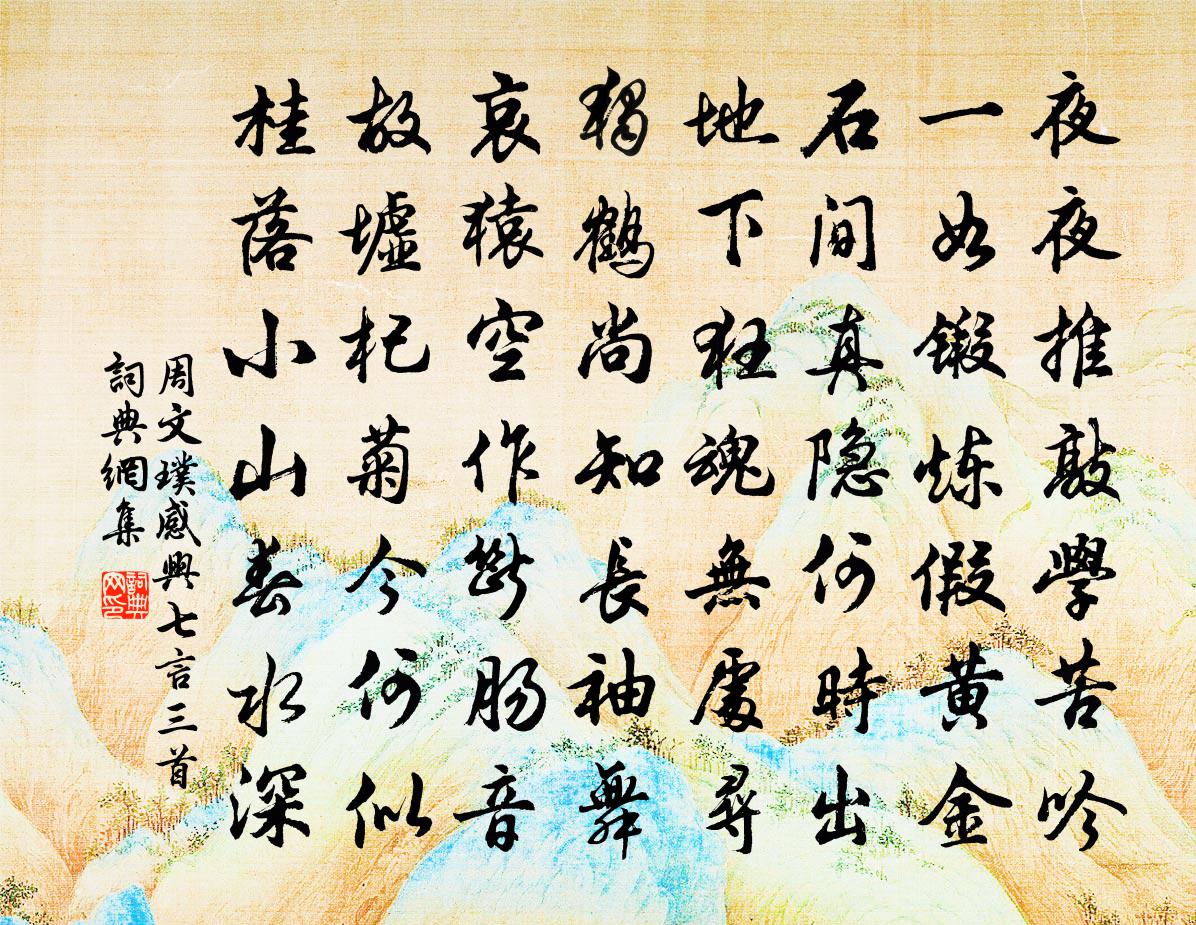 夜夜推敲學苦吟
一如鍛炼假黄金
石间真隐何時出
地下狂魂無處尋
獨鶴尚知長袖舞
哀猿空作斷腸音
故墟杞菊今何似
桂落小山春水深
周文璞感興七言三首
詞典網集
詞典网印